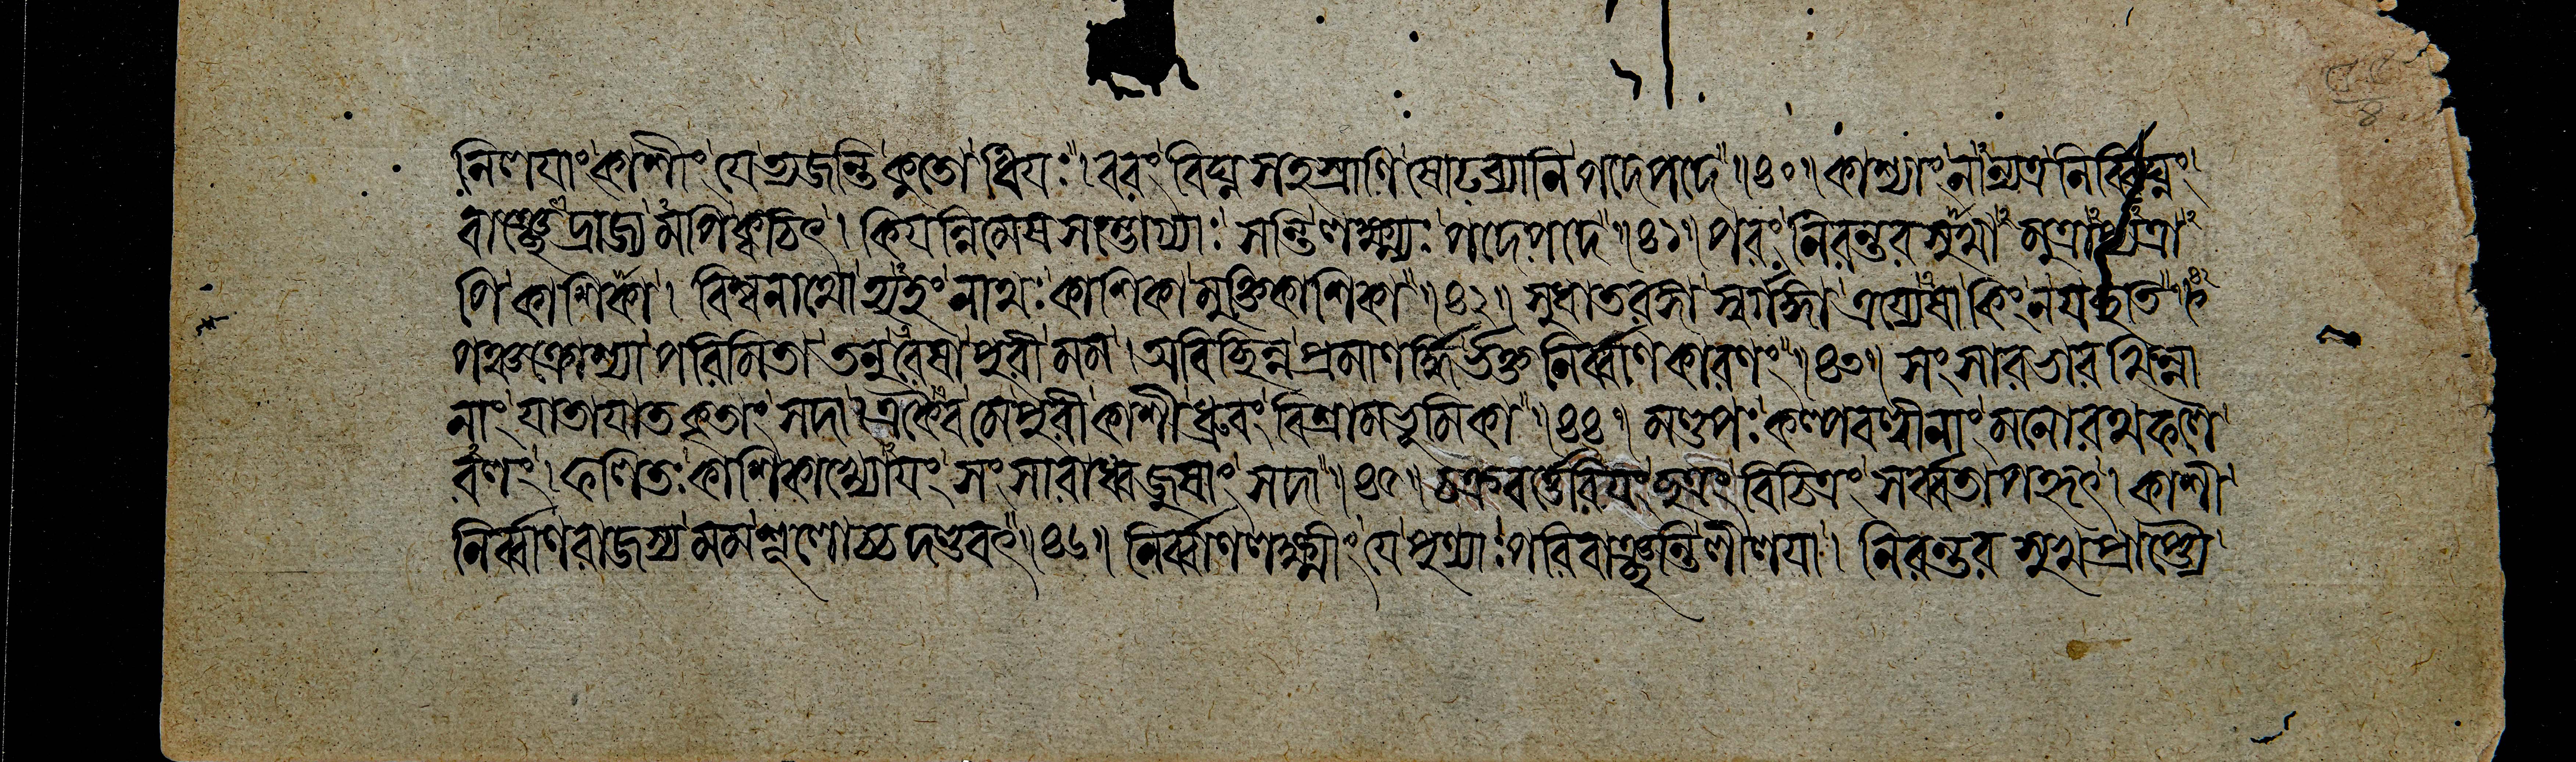 নিলযাং কাশীং যে ত্যজন্তি কুতো ধিযঃ । বরং বিঘ্নসহস্রাণি সোঢব্যানি পদে পদে ॥ ৪০ ॥ কাশ্যাং নান্যত্র নির্ব্বিঘ্নং
বাঞ্ছেদ্রাজ্যমপি ক্বচিৎ । কিযন্নিমেষসম্ভোগ্যাঃ সন্তি লক্ষ্ম্যঃ পদে পদে ॥ ৪১ ॥ পরং নিরন্তরসুখামুত্রাপ্যত্রা
পি কাশিকা । বিশ্বনাথো হ্যহং নাথঃ কাশিকা মুক্তিকাশিকা ॥ ৪২ ॥ সুধাতরঙ্গা স্বর্গঙ্গা ত্রয্যেষা কিং ন যচ্ছতি ।
পঞ্চক্রোশ্যা পরিমিতা তনুরেষা পুরী মম । অবিচ্ছিন্নপ্রমাণর্দ্ধির্ভক্তনির্ব্বাণকারণং ॥ ৪৩ ॥ সংসারভারখিন্না
নাং যাতাযাতকৃতাং সদা । একৈব মে পুরী কাশী ধ্রুবং বিশ্রামভূমিকা ॥ ৪৪ ॥ মণ্ডপঃ কল্পবল্লীনাং মনোরথফলৈ
রলং । ফলিতঃ কাশিকাখ্যোযং সংসারাধ্বজুষাং সদা ॥ ৪৫ ॥ চক্রবর্ত্তেরিযং ছত্রং বিচিত্রং সর্ব্বতাপহৃৎ । কাশী
নির্ব্বাণরাজস্য মম শূলোচ্চদণ্ডবৎ ॥ ৪৬ ॥ নির্ব্বাণলক্ষ্মীং যে পুণ্যাঃ পরিবাঞ্ছন্তি লীলযা । নিরন্তরসুখপ্রাপ্ত্যৈ